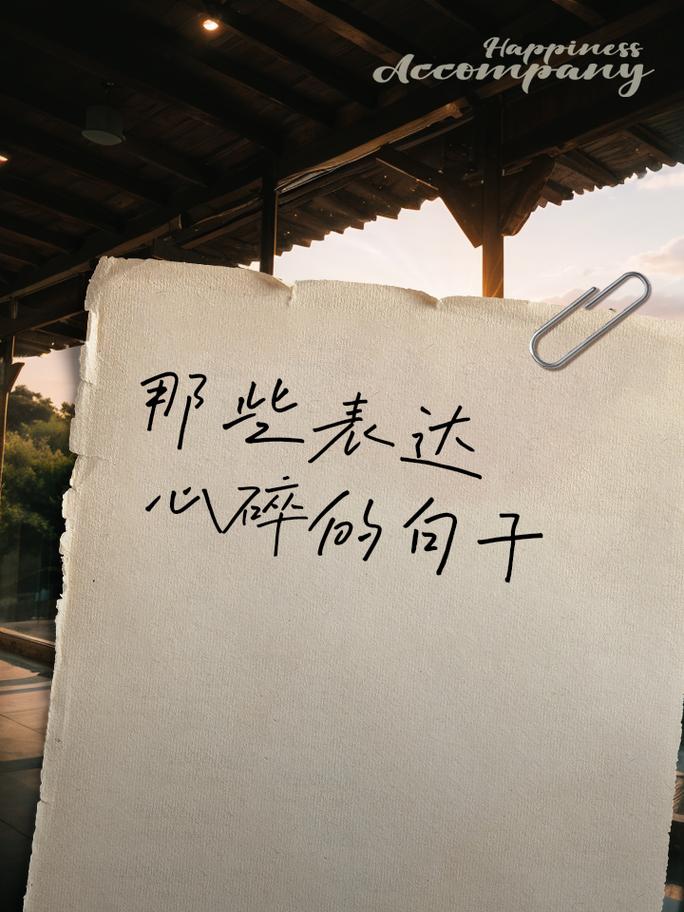 Happiness
Accompany
那些表达
心碎的句子